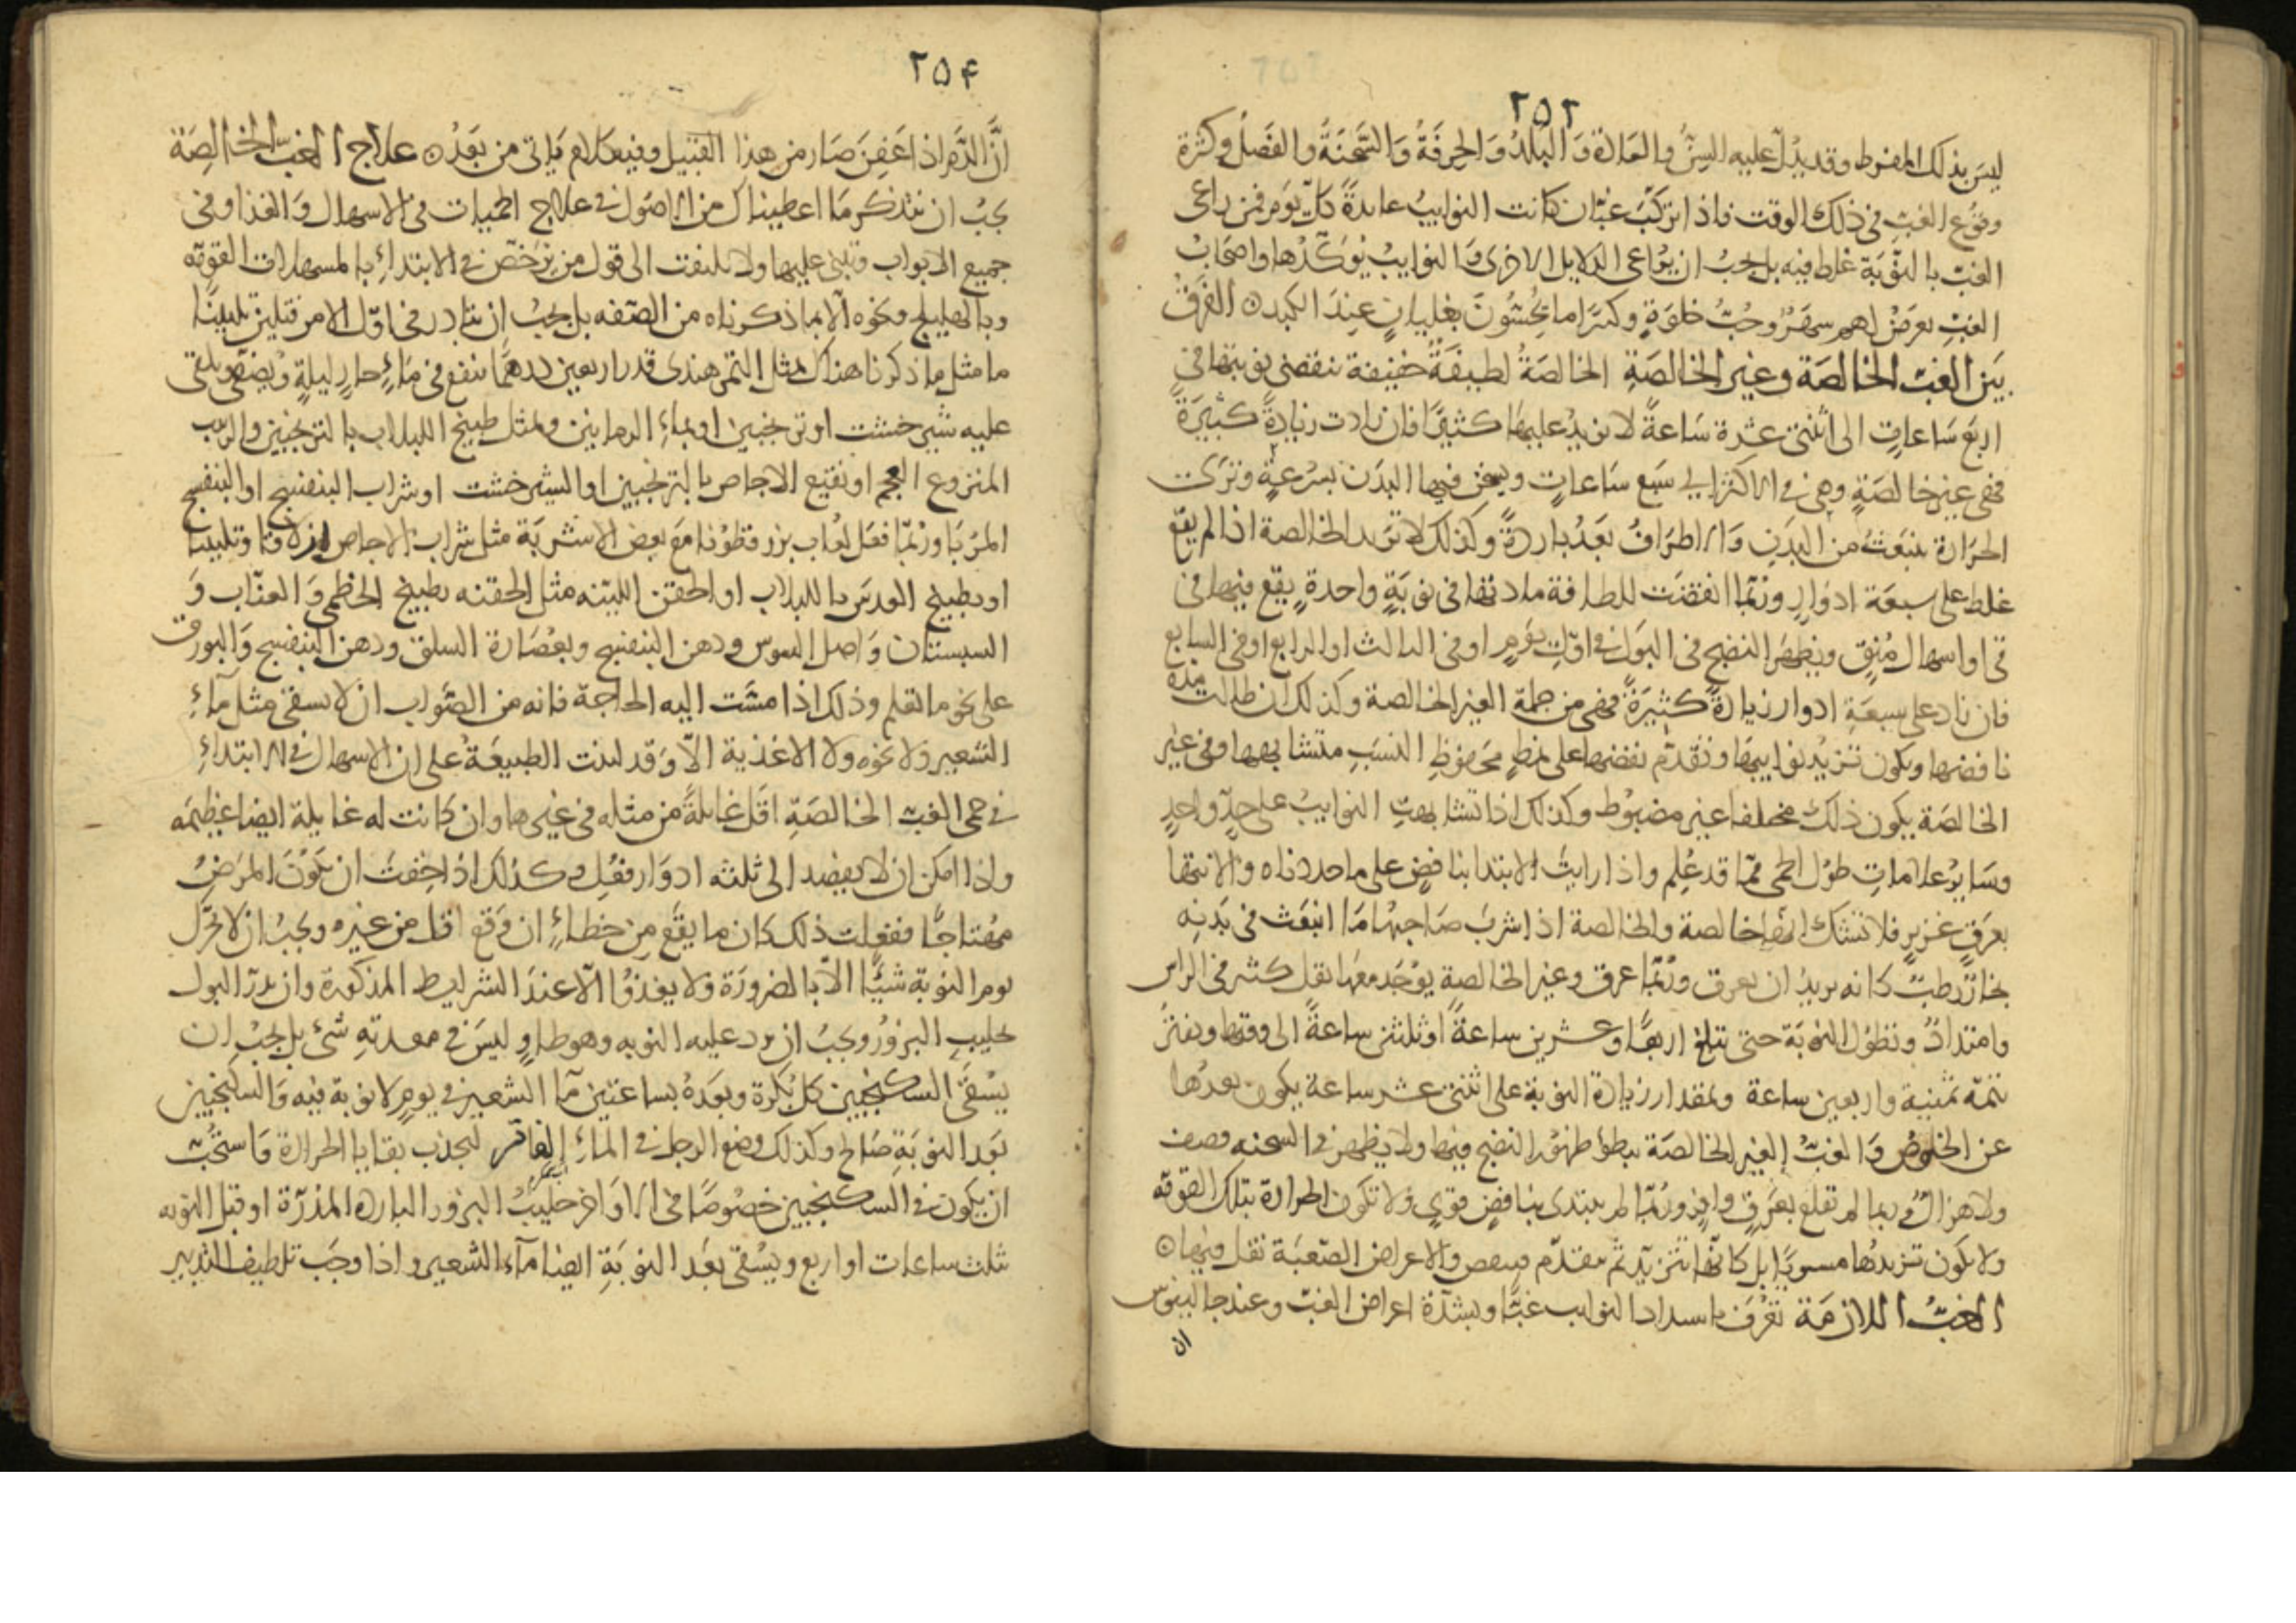 ٢٥٢
ليس بذلك المفرط وقد يدل عليه السن والعادة والبلد والحرفة والسحنة والفصل وكثرة
وقوع الغب في ذلك الوقت فاذا تركب غبان كانت النوايب عايدة كل يوم فمن راعى
الغب بالنوبة غلط فيه بل يجب ان يراعى الدلايل الاخرى والنوايب يوكدها واصحاب
الغب يعرض لهم سهر وحب خلوة وكثيرا ما يحسون بغليان عند الكبد ۞ الفرق
بين الغب الخالصة وغير الخالصة الخالصة لطيفة خفيفة تنقضي نوبتها في
اربع ساعات الى اثنتي عشرة ساعة لا تزيد عليها كثيرا فان زادت زيادة كثيرة
فهي غير خالصة وهي في الاكثر الى سبع ساعات ويسخن فيها البدن بسرعة وترى
الحرارة تنبعث من البدن والاطراف بعد باردة وكذلك لا تزيد الخالصة اذا لم يقع
غلط على سبعة ادوار وربما انقضت للطافة مادتها في نوبة واحدة يقع فيها قي
قي او اسهال منق ويظهر النضج في البول في اول يوم او في الثالث او الرابع او في السابع
فان زاد على سبعة ادوار زيادة كثيرة فهي من جملة الغير الخالصة وكذلك ان طالت مدة
نافضها ويكون تزيد نوايبها وتقدم نفضها على نمط محفوظ النسب متشابهها وفي غير
الخالصة يكون ذلك مختلفا غير مضبوط وكذلك اذا تشابهت النوايب على حد واحد
وساير علامات طول الحمى مما قد علم واذا رايت الابتدا بنافض على ما حددناه والانتها
بعرق غزير فلا تشك انها خالصة والخالصة اذا شرب صاحبها ما انبعث في بدنه
بخار رطب كانه يريد ان يعرق وربما عرق وغير الخالصة يوجد معها ثقل كثير في الراس
وامتداد وتطول النوبة حتى تبلغ اربعا وعشرين ساعة او ثلثين ساعة الى وقتها ويفتر
تتمة ثمنية واربعين ساعة وبمقدار زيادة النوبة على اثنتي عشر ساعة يكون بعدها
عن الخلوص والغب الغير الخالصة يبطؤ ظهور النضج فيها ولا يظهر في السحنه وصف
ولا هزال وربما لم تقلع بعرق وافر وربما لم يبتدى بنافض قوي ولا تكون الحرارة بتلك القوة
ولا يكون تزيدها مستويا بل كانها تتزيد ثم تتقدم فينقص والاعراض الصعبة تقل فيها ۞
الغب اللازمة تعرف باشتداد النوايب غبا وبشدة اعراض الغب وعند جالينوس
ان
٢٥٤
ان الدم اذا عفن صار من هذا القبيل وفيه كلام ياتي من بعد ۞ علاج الغب الخالصة
يجب ان تتذكر ما اعطيناك من الاصول في علاج الحميات في الاسهال والغذا وفي
جميع الابواب وتبنى عليها ولا تلتفت الى قول من يرخص في الابتداء بالمسهلات القوية
وبالهليلج ونحوه الا بما ذكرناه من الصفه بل يجب ان تبادر في اول الامر فتلين تليينا
ما مثل ما ذكرنا هناك بمثل التمر هندى قدر اربعين درهما ينقع في ماء حار ليلة ويصفى ويلقى
عليه شير خشت او ترنجبين او بماء الرمانين وبمثل طبيخ اللبلاب بالترنجبين والزبيب
المنزوع العجم او نقيع الاجاص بالترنجبين او الشير خشت او شراب البنفسج او البنفسج
المربا وربما فعل لعاب بزر قطونا مع بعض الاشربة مثل شراب الاجاص ازلاقا وتليينا
او بطبيخ العدس باللبلاب او الحقن اللينه مثل الحقنه بطبيخ الخطمى والعناب و
السبستان واصل السوس ودهن البنفسج وبعصارة السلق ودهن البنفسج والبورق
على نحو ما تعلم وذلك اذا مست اليه الحاجة فانه من الصواب ان لا يسقى مثل ماء
الشعير ولا نحوه ولا الاغذية الا وقد لينت الطبيعة على ان الاسهال في الابتداء
في حمى الغب الخالصة اقل غايلة من مثله في غيرها وان كانت له غايلة ايضا عظيمه
واذا امكن ان لا يفصد الى ثلثه ادوار فعل وكذلك اذا خفت ان يكون المرض
مهتاجا ففعلت ذلك كان ما يقع من خطاء ان وقع اقل من غيره ويجب ان لا تحرك
يوم النوبة شيئا الا بالضرورة ولا يغذوا الا عند الشرايط المذكورة وان يدر البول
بحليب البزور ويجب ان يرد عليه النوبه وهو طاو ليس في معدته شئ بل يجب ان
يسقى السكنجبين كل بكرة وبعده بساعتين ما الشعير في يوم لا نوبة فيه والسكنجبين
بعد النوبة صالح وكذلك وضع الرجل في الماء الفاتر لتجذب بقايا الحرارة واستحب
ان يكون في السكنجبين خصوصا في الاواخر حليب البزور البارده المدرة او قبل النوبه
ثلث ساعات او اربع ويسقى بعد النوبة ايضا ماء الشعير واذا وجب تلطيف التدبير